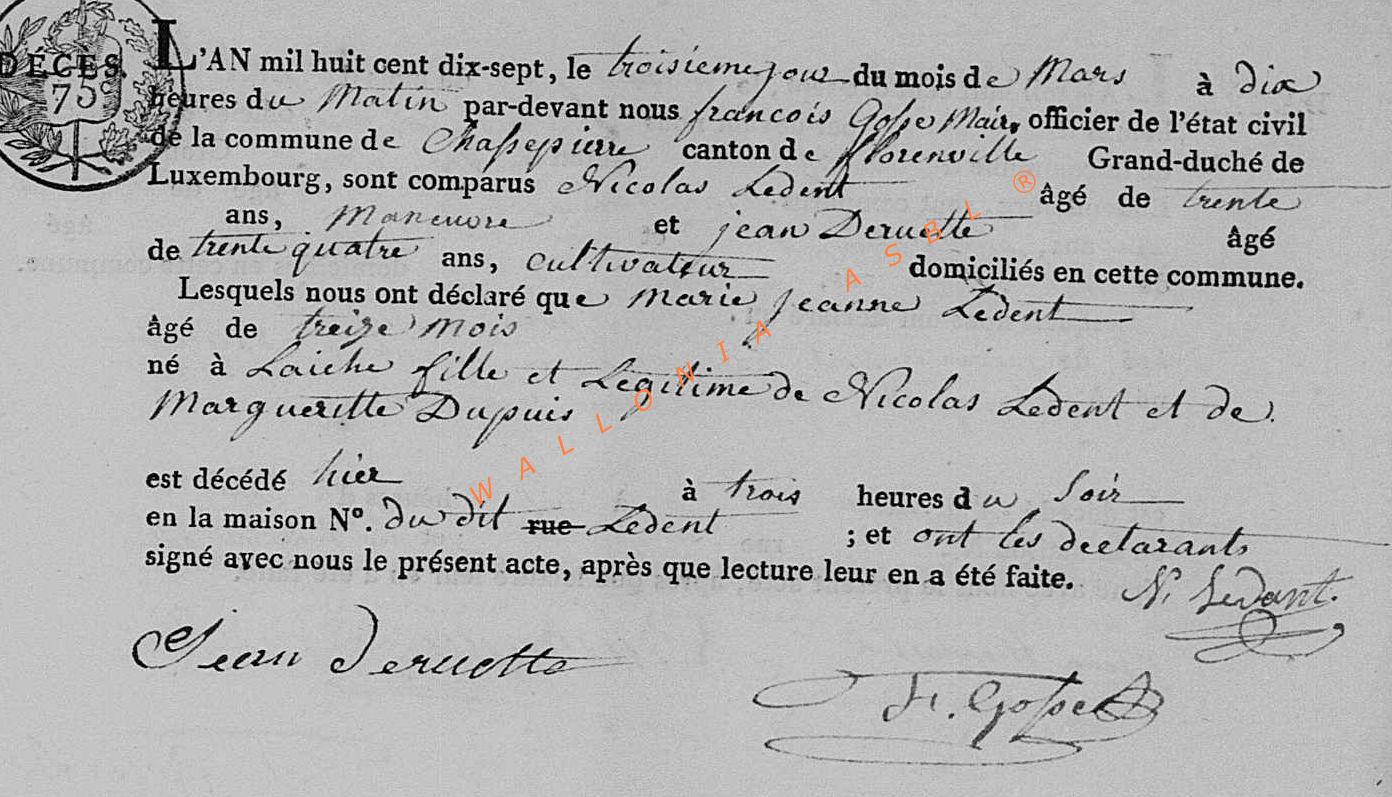 DÉCÈS.
75
L'AN mil huit cent dix-sept, le troisieme jour du mois de Mars à dix
heures du Matin par-devant nous francois Gosse Maire officier de l'état civil
de la commune de Chassepierre canton de florenville Grand-duché de
Luxembourg, sont comparus Nicolas Ledent âgé de trente
ans, Maneuvre et jean Deruette âgé
de trente quatre ans, cultivateur domiciliés en cette commune.
Lesquels nous ont déclaré que marie jeanne Ledent
âgé de treize mois
né à Laiche fille et Legitime de Nicolas Ledent et de
Margueritte Dupuis
est décédé hier à trois heures du Soir
en la maison N°. du dit rue Ledent ; et ont les declarants
signé avec nous le présent acte, après que lecture leur en a été faite.
N. Ledant.
Jean Deruette
F. Gosse
WALLONIA ASBL ®